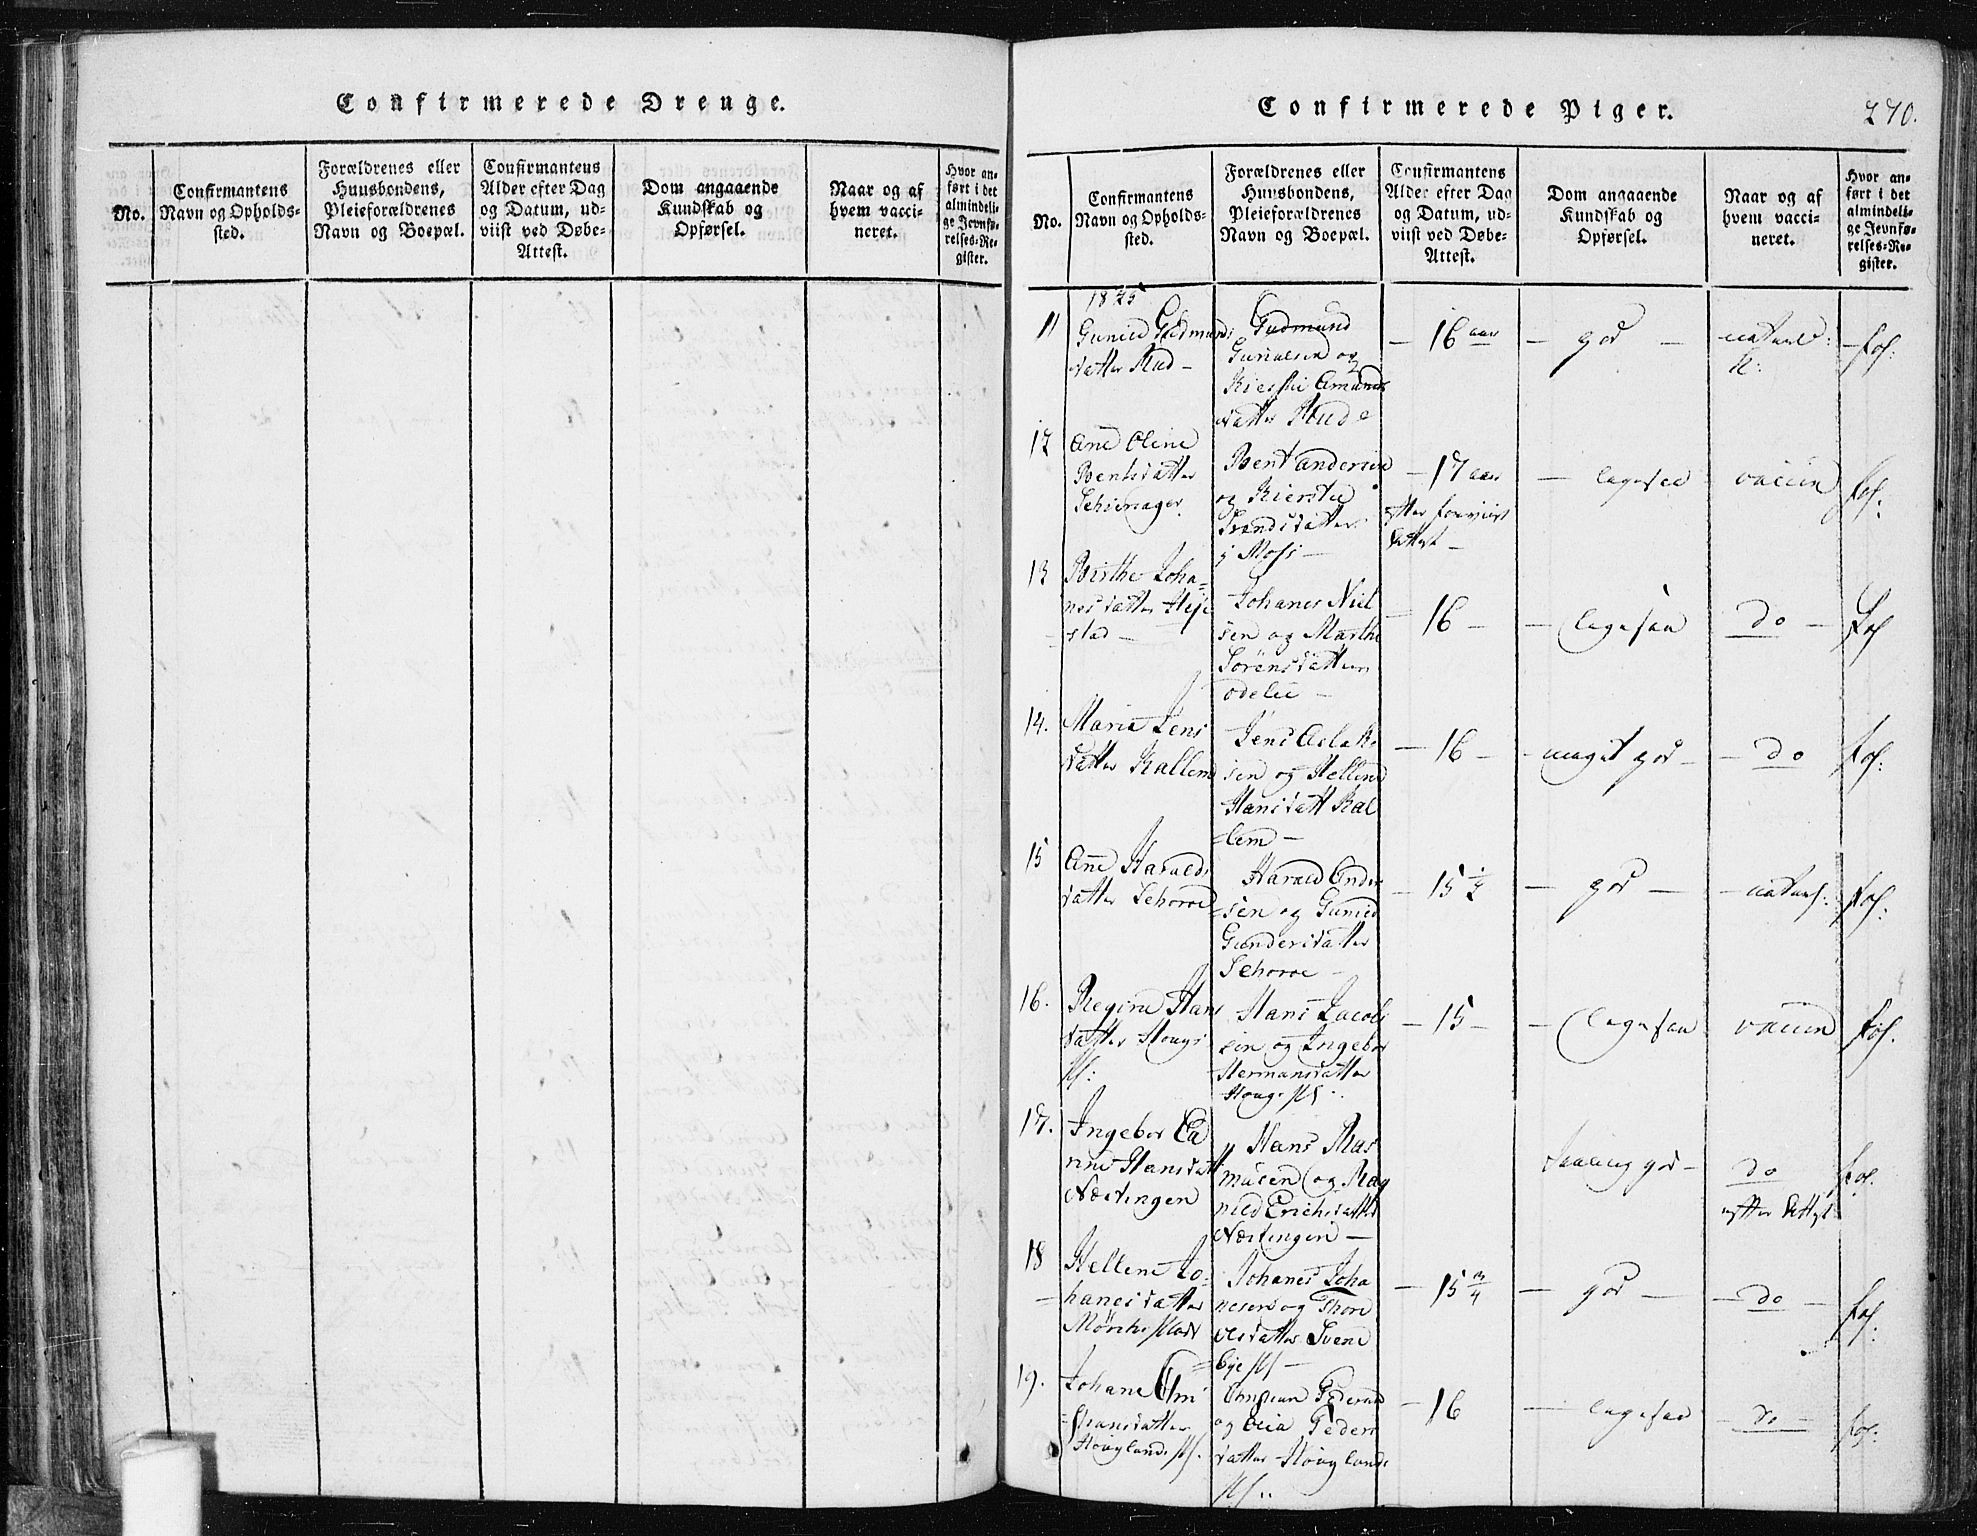 Confirmerede Drenge.
No.
Confirmantens
Navn og Opholds-
sted.
Forældrenes eller
Huusbondens,
Pleieforældrenes
Navn og Boepæl.
Confirmantens
Alder efter Dag
og Datum, ud-
viist ved Døbe-
Attest.
Dom angaaende
Kundskab og
Opførsel.
Naar og af
hvem vacci-
neret.
Hvor an-
ført i det
almindeli-
ge Jevnfø-
relses-Re-
gister.
Confirmerede Piger.
270.
No.
Confirmantens
Navn og Opholds-
sted.
Forældrenes eller
Huusbondens,
Pleieforældrenes
Navn og Boepæl.
Confirmantens
Alder efter Dag
og Datum, ud-
viist ved Døbe-
Attest.
Dom angaaende
Kundskab og
Opførsel.
Naar og af
hvem vacci-
neret.
Hvor an-
ført i det
almindeli-
ge Jevnfø-
relses-Re-
gister.
1825
11
Gunild Gudmunds
datter Rud -
Gudmund
og
Amunds
datter Rud
- 16 aar
- god -
naturl:
fol:
12
Ane Oline
Bentsdatter
Bent Andersen
og Kierstie
datter
i Moss -
- 17 aar
- ligesaa
vaccin
fol:
13
Birthe Joha-
nesdatter Heje
- stad -
Johanes Niel
sen og Marthe
Sørensdatter
- 16 -
- ligesaa
do -
fol
14.
Maria Jens
datter Kallem
Jens Aslak
sen og Hellene
Hansdatt Kal
- lem -
- 16 -
- meget god -
- do
fol:
15
Ane Haralds
datter Schoroe
Harald Ander
- sen og Gunild
Gundersdatter
Schoroe -
- 15 1/2
- god -
- naturl:
fol:
16.
Regine Hans
datter Houg
Hans Jacob
sen og Ingebor
Hermansdatter
Houg
- 15 -
- ligesaa
vaccin
fol.
17.
Ingebor Ca
rine Hansdatt
Næstingen
Hans Ras
musen og Rag
nild Erichsdatter
Næstingen -
god -
do
efter Attest
fol.
18
Hellene Jo-
= hanesdatter
Johanes Joha
nesen og Thore
Olsdatter Svene
= bye -
- 15 3/4
- god -
- do -
fol:
19.
Johane Chri
= stiansdatter
Houglands
Christian Pedersen
og Peders
datter Houglands
- 16
- ligesaa
- do -
fol: